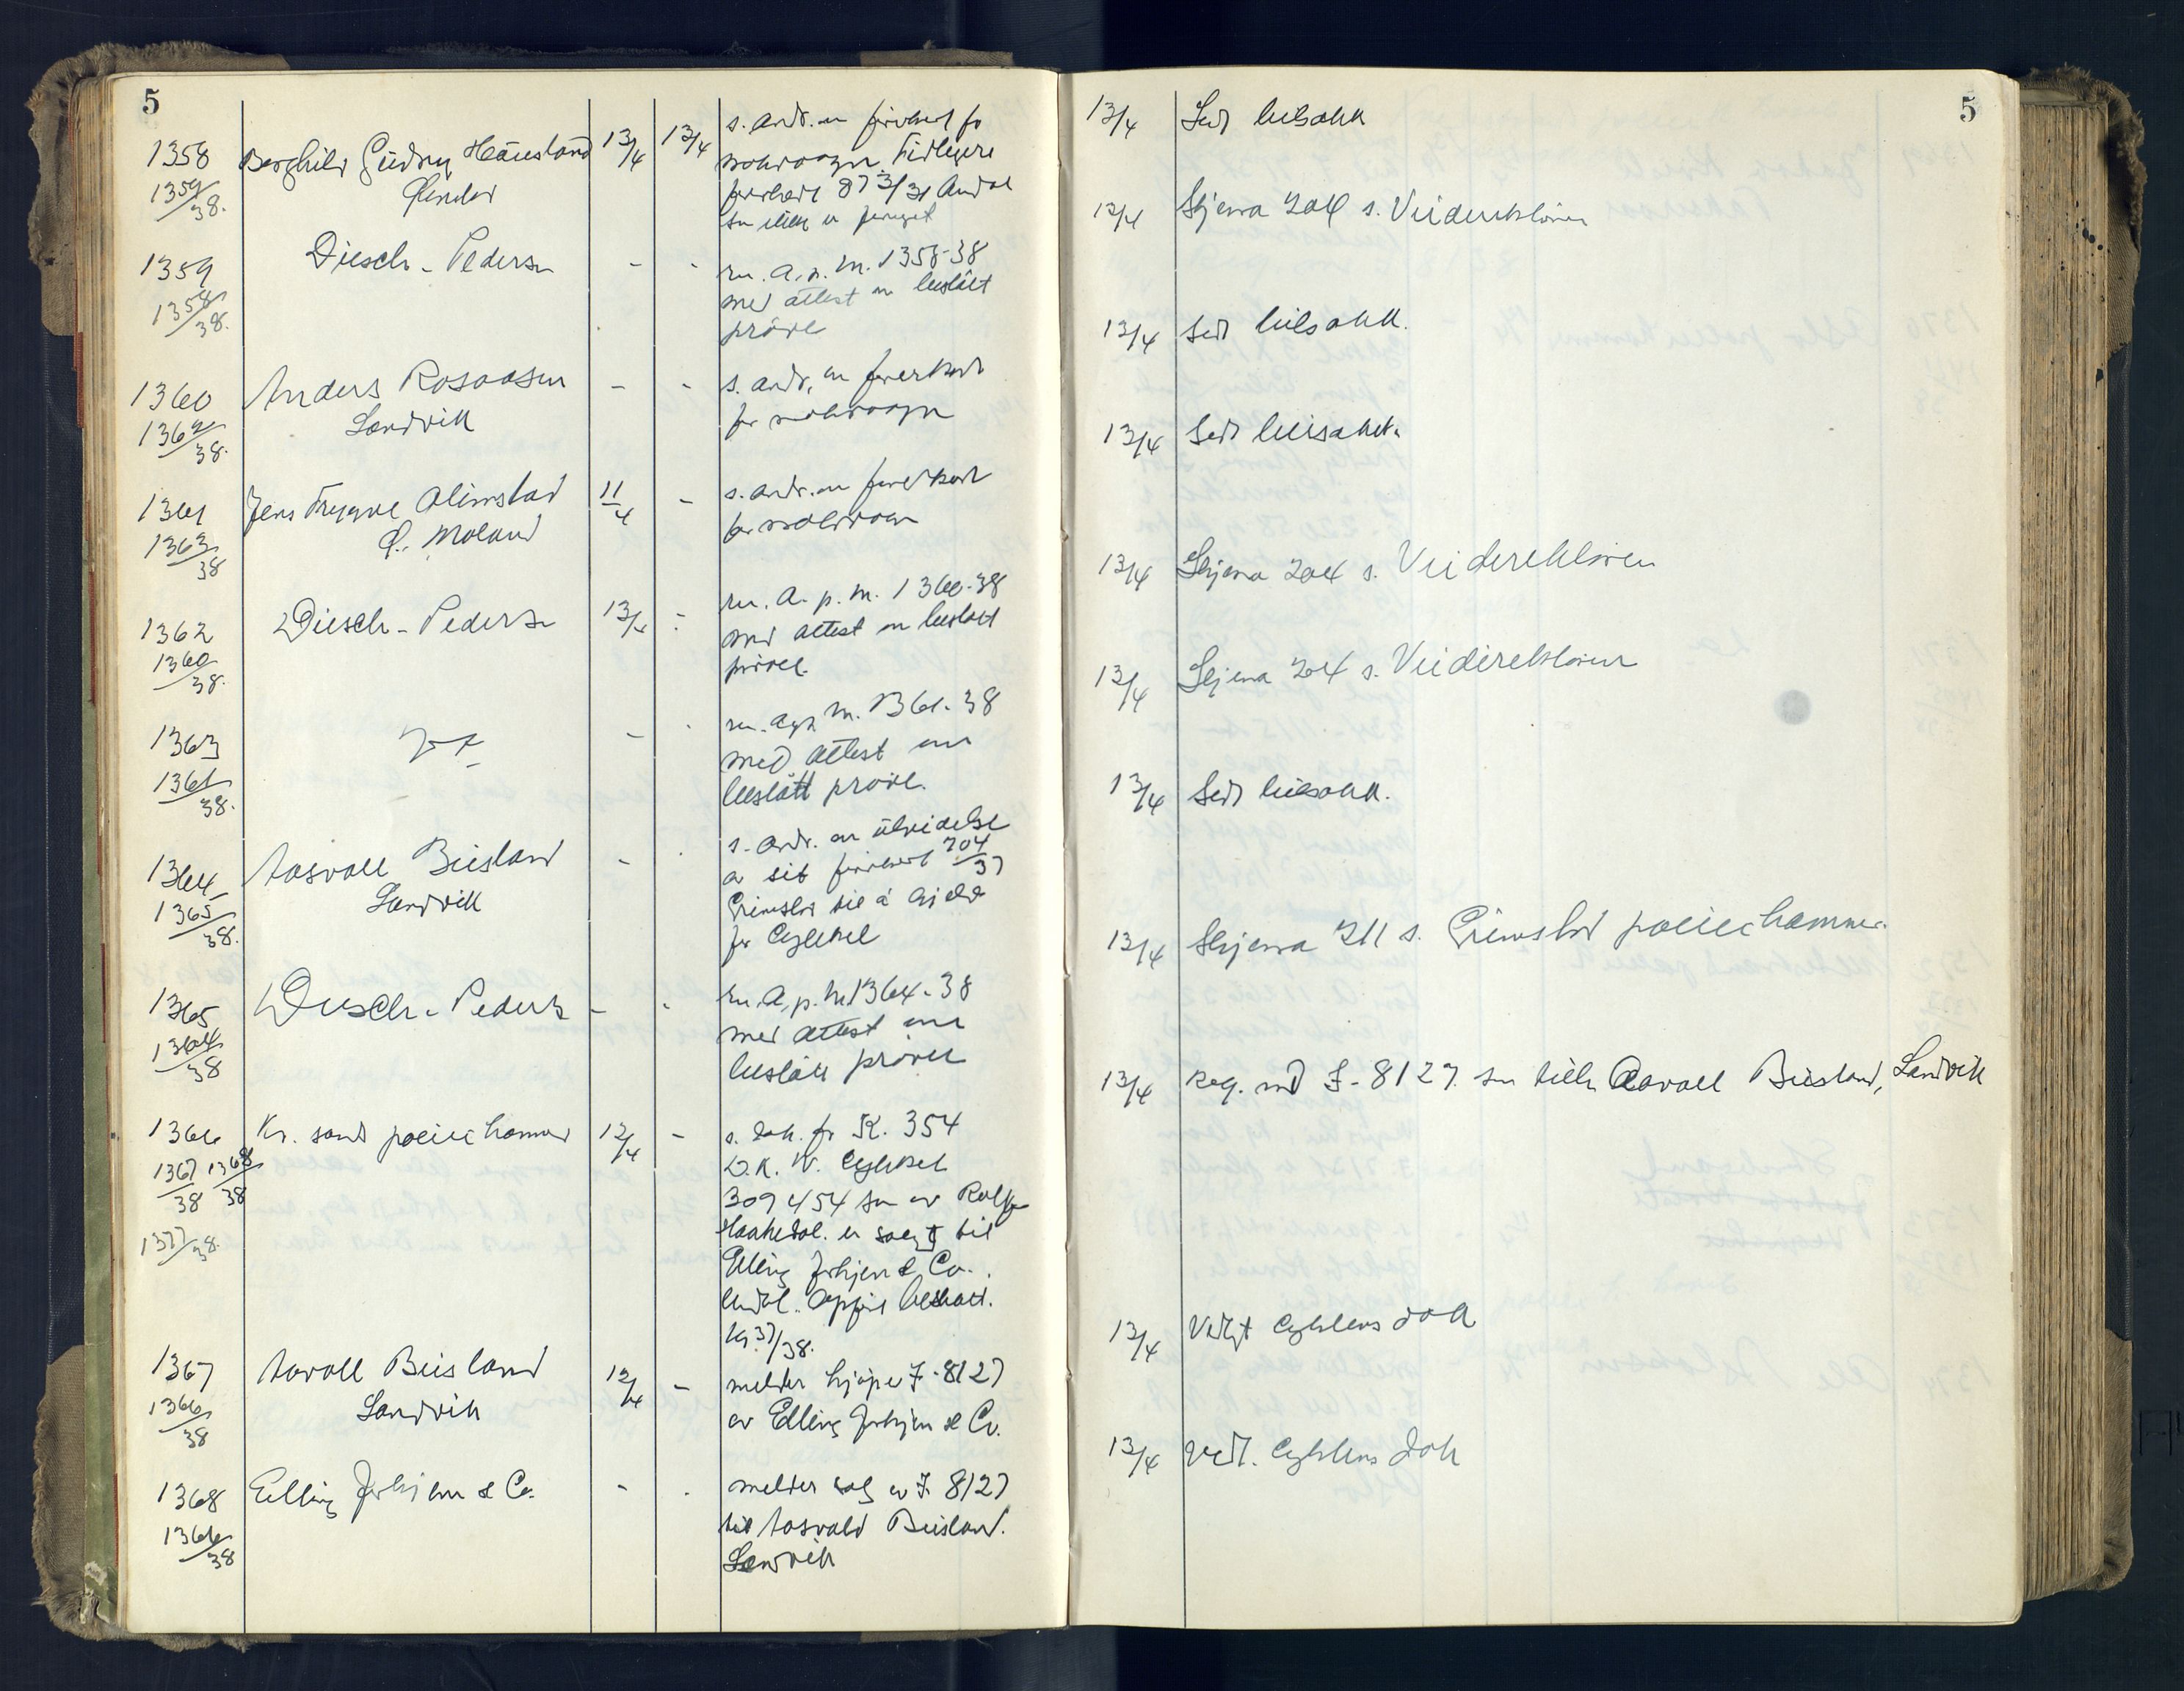 5
1358
1359/38.
Borghild Gudny Haugland
13/4
13/4
s. andr. om førerkort for
motorvogn Tidligere
førerkort 873/31 Arndal
som ikke er fornyet
1359
1358/38.
Diesch-Pedersen
-
-
rn. A. p. m. 1358-38
med attest om bestått
prøve
1360
1362/38.
Anders Rosaasen
Landvik
-
-
s. andr. om førerkort
for motorvogn
1361
1363/38
Jens Trygve Olimstad
Ø. Moland
11/4
-
s. andr. om førerkort
for motorvogn
1362
1360/38.
Diesch-Pedersen
13/4
-
rn. A. p. m. 1360-38
med attest om bestått
prøve.
1363
1361/38.
-
rn. A.p. m. 1361-38
med attest om
bestått prøve.
1364
1365/38.
Aasvall Biesland
Landvik
-
s. andr. om utvidelse
av sit førerkort 704/37
Grimstad til å gjelde
for Cykkel
1365
1364/38
Diesch-Pedersen
-
-
rn. A. p. m. 1364-38
med attest om
bestått prøve
1366
1367/38 1368/38
1377/38.
Kr. sand politikammer
12/4
-
s. dok. for K. 354
D.K.W. Cykkel
309454 som av Rolf
Haakedal. er solgt til
Elling Johnsen & Co.
Arndal.
kr 37/38.
1367
1366/38
Aavall Biesland
Landvik
12/4
-
melder kjøp av I-8127
av Elling Johnsen & Co.
1368
1366/38
Elling Johnsen & Co.
-
melder salg av I. 8127
til Aasvald Biesland.
Landvik
5
13/4 Sed bilsakk
13/4 Skjema 204 s. Veidirektøren
13/4 Sed bilsakk.
13/4 Sed bilsakk.
13/4 Skjema 204 s. Veidirektøren
13/4 Skjema 204 s. Veidirektøren
13/4 Sed bilsakk.
13/4 Skjema 211 s. Grimstad politikammer.
13/4 Reg. md I-8127. som tilh. Aavall Biesland, Landvik
13/4 Vedlagt Cykkelens dok
13/4 Vedl. Cykkelens dok